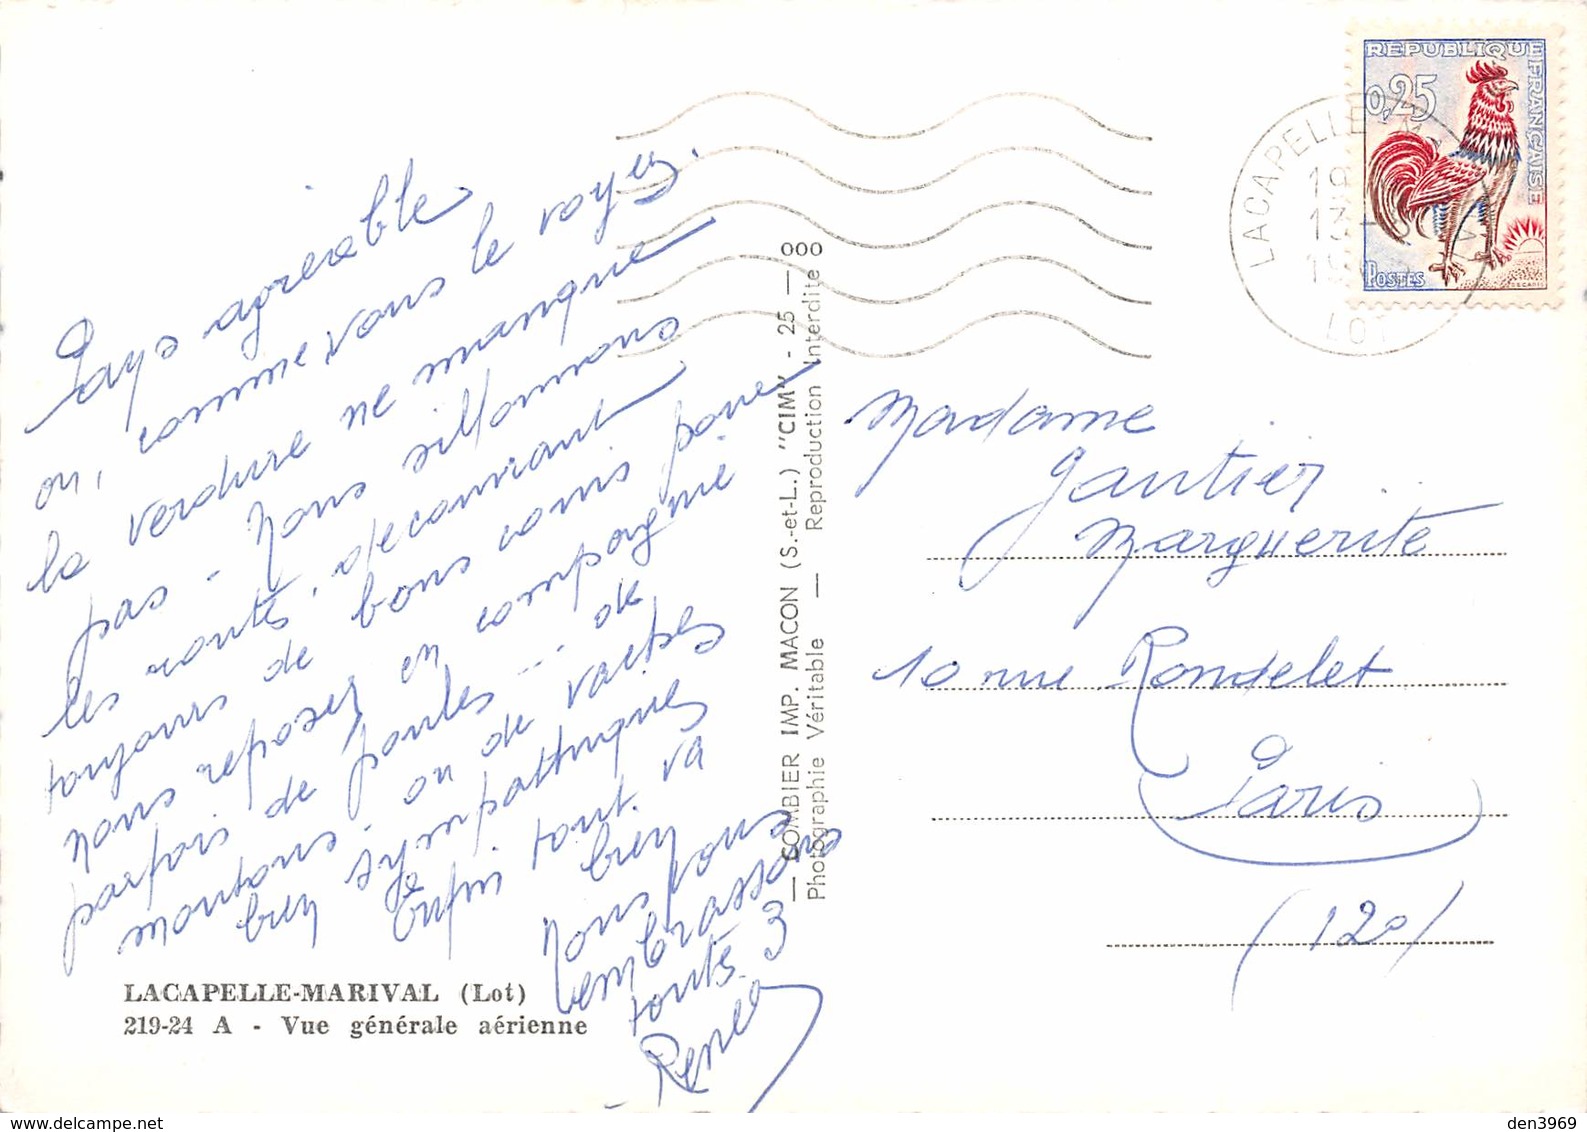 Pays agréable
où, comme vous le voyez,
la verdure ne manque
pas - Nous sillonnons
les routes, découvrant
toujours de bons coins pour
nous reposer en compagnie
parfois de poules ... de
moutons ou de vaches
bien
Enfin tout va
bien
Nous
embrassons
toutes 3
Renée
LACAPELLE-MARIVAL (Lot)
219-24 A - Vue générale aérienne
COMBIER IMP. MACON (S.-et-L.) "CIM" - 25 - 000
Photographie Véritable — Reproduction Interdite
REPUBLIQUE FRANÇAISE
0,25
POSTES
LACAPELLE
LOT
Madame
Gautier
Marguerite
10 rue Rondelet
Paris
(12e)
den3969